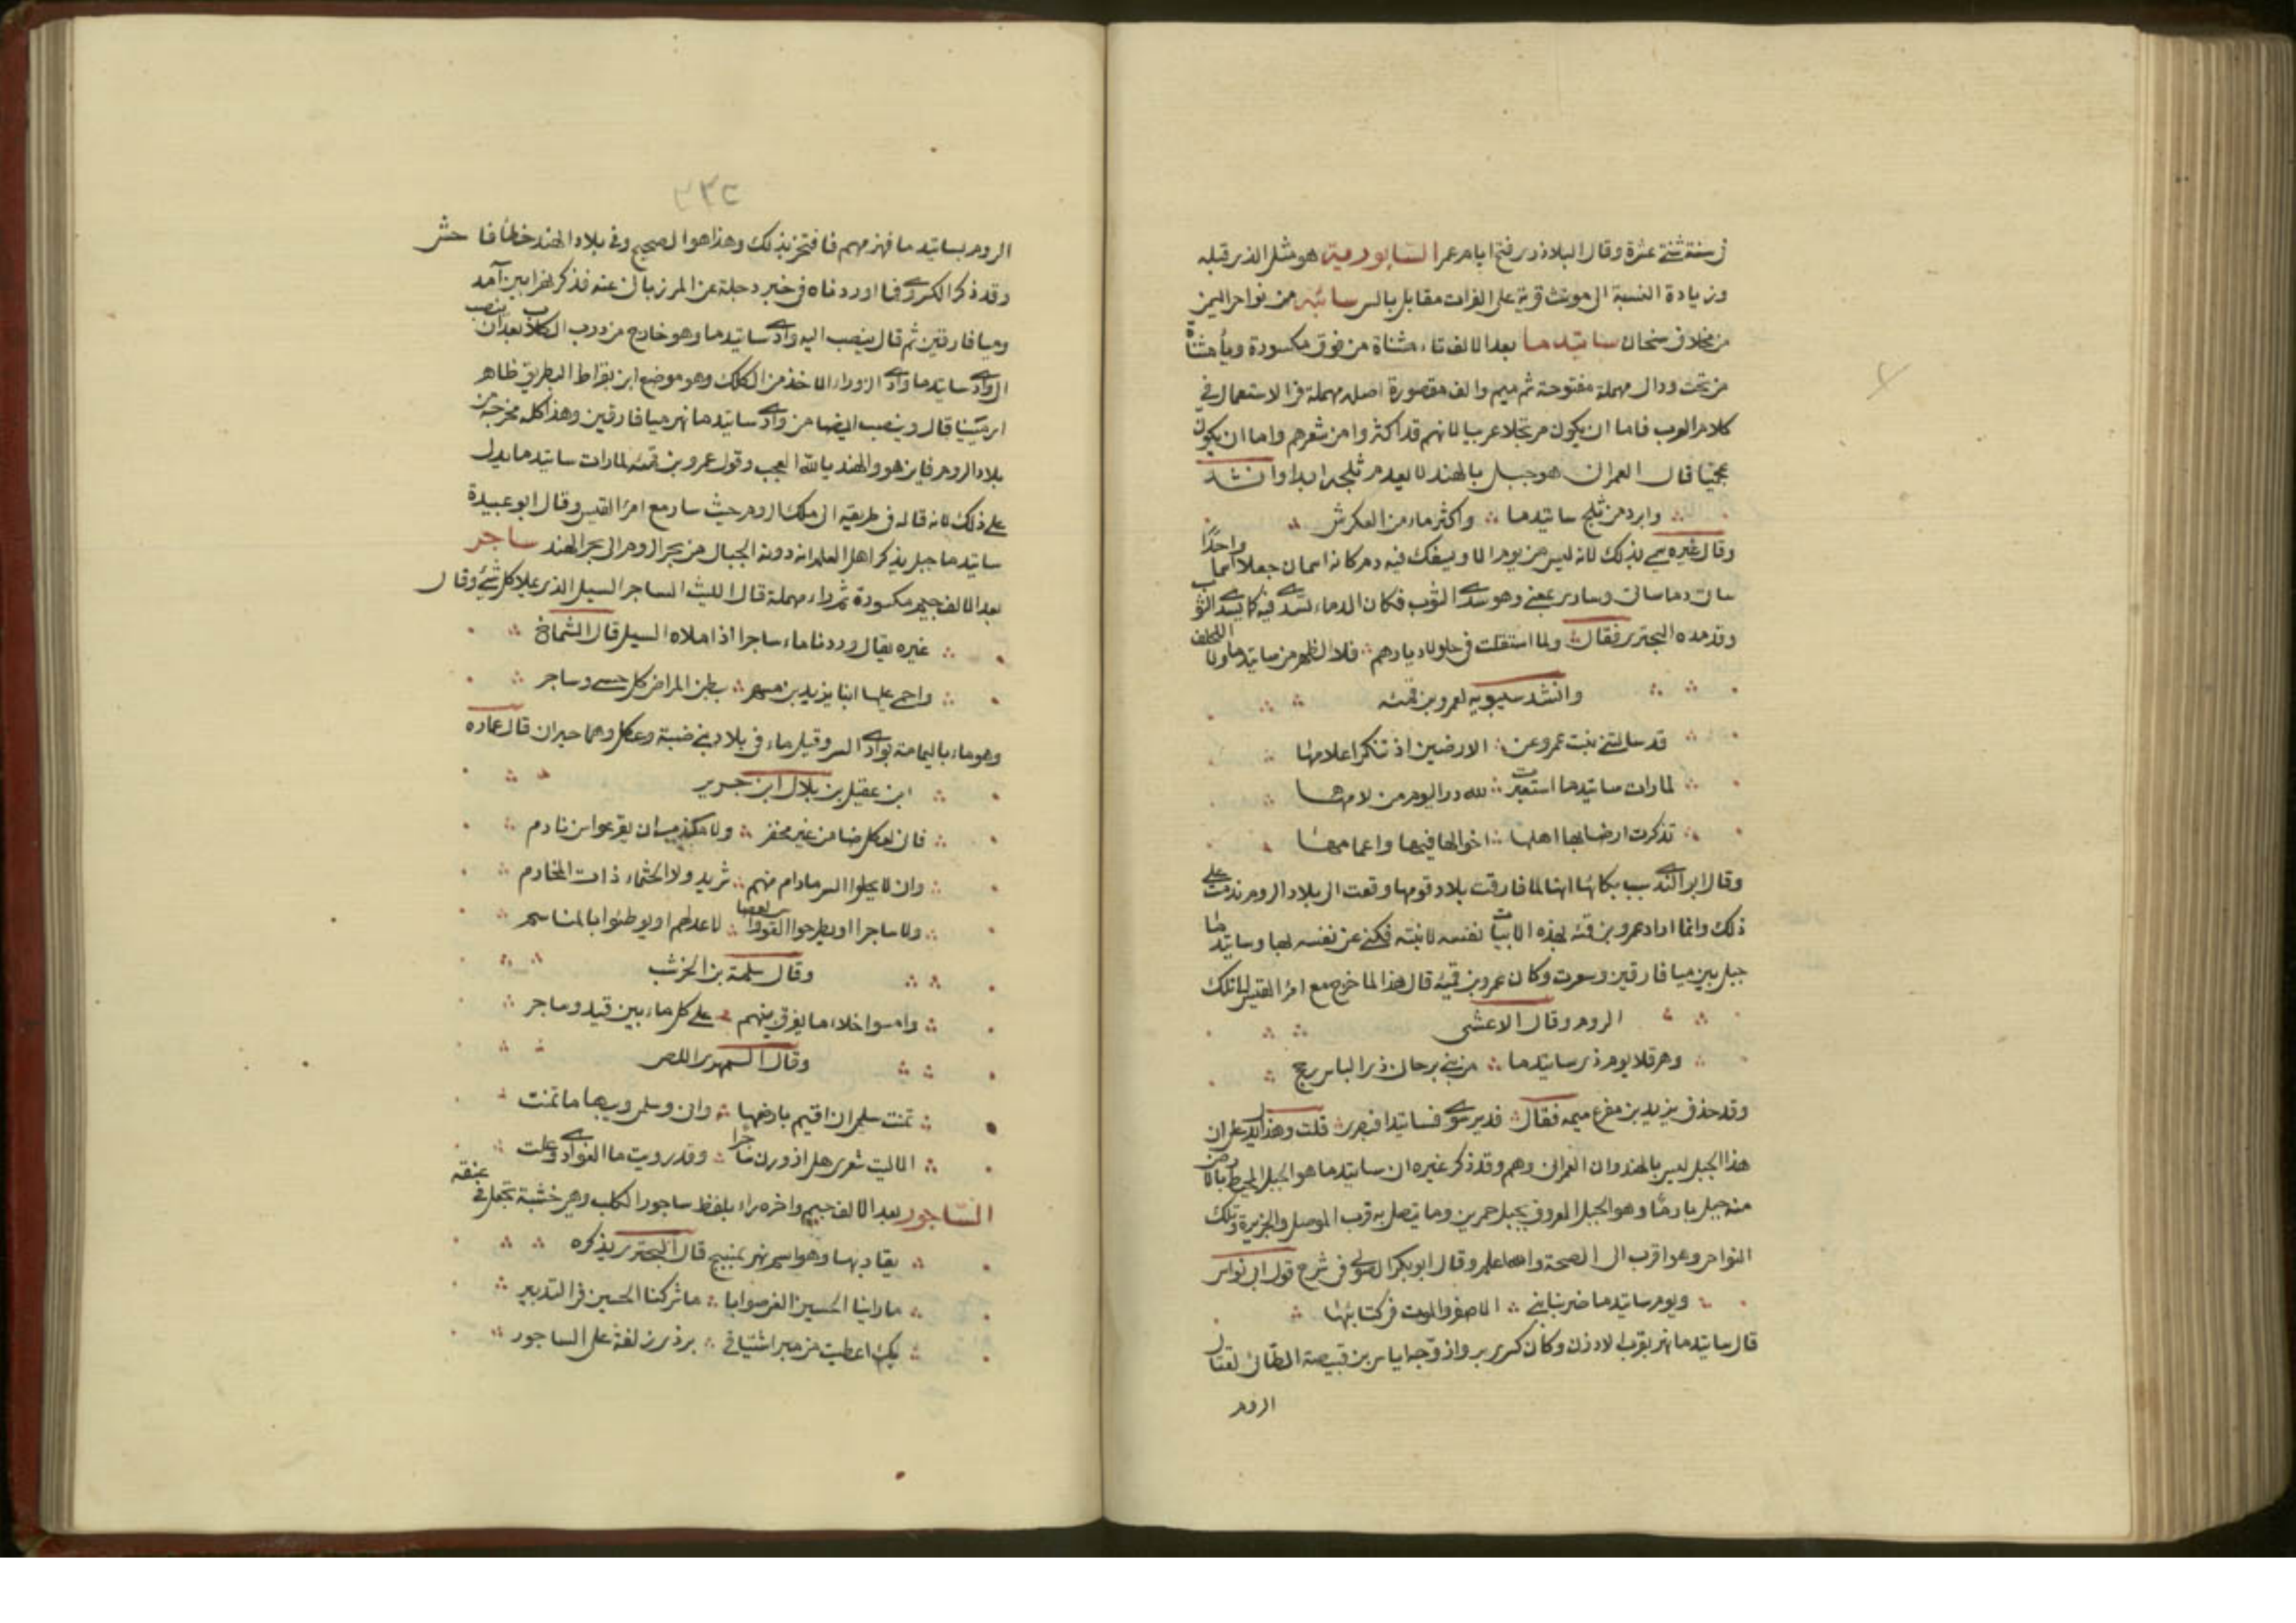 في سنة ثنتي عشرة وقال البلاذري فتح ايام عمر السابورمية هو مثل الذي قبله
وزيادة النسبة الى مونث قرية على الفرات مقابل بالس سائبه من نواحي اليمن
من مخلاف سنحان ساتيدما بعد الالف تاء مثناة من فوق مكسورة وياء مثناة
من تحت ودال مهملة مفتوحة ثم ميم والف مقصورة اصله مهملة في الاستعمال في
كلام العرب فاما ان يكون مرتجلا عربيا لانهم قد اكثروا من شعرهم واما ان يكون
عجميا قال العمراني هو جبل بالهند لا يعدم ثلجه ابدا وانشد
وابرد من ثلج ساتيدما واكثر ماء من العكرش
وقال غيره سمي بذلك لانه ليس من يوم الا ويسفك فيه دم كانه اسمان جعلا اسما واحدًا
ساتي دما ساتي وسادي بمعنى وهو سدى الثوب فكان الدماء تسدى فيه كما يسدى الثوب
وقد مده البحتري فقال ولما استقلت في جلولا ديارهم فلا الظهر من ساتيدما ولا اللحف
وانشد سيبويه لعمرو بن قمئه
قد سالتني بنت عمرو عن الارضين اذ تنكر اعلامها
لما رات ساتيدما استعبرت لله در اليوم من لامها
تذكرت ارضا بها اهلها اخوالها فيها واعمامها
وقال ابو الندى سبب بكائها انها لما فارقت بلاد قومها وقعت الى بلاد الروم ندمت على
ذلك وانما اراد عمرو بن قمئه بهذه الابيات نفسه لا بنته فكنى عن نفسه بها وساتيدما
جبل بين ميافارقين وسعرت وكان عمرو بن قمئة قال هذا لما خرج مع امرا القيس الى ملك
الروم وقال الاعشى
وهرقلا يوم ذي ساتيدما من بني برجان ذي الباس رجح
وقد حذف يزيد بن مفرغ ميمه فقال فدير سوى فساتيدا فبصرى قلت وهذا يدل على ان
هذا الجبل ليس بالهند وان العمراني وهم وقد ذكر غيره ان ساتيدما هو الجبل المحيط بالارض
منه جبل بارما وهو الجبل المعروف بجبل حمرين وما يتصل به قرب الموصل والجزيرة وتلك
النواحي وهو اقرب الى الصحة والله اعلم وقال ابو بكر الصولي في شرح قول ابي نواس
ويوم ساتيدما ضربنا بني الاصفر والموت في كتائبها
قال ساتيدما نهر بقرب الارزن وكان كسرى برواز وجه اياس بن قبيصة الطائي لقتال
الروم
٣٣٢
الروم بساتيدما فهزمهم فافتخر بذلك وهذا هو الصحيح وفي بلاد الهند خطأ فاحش
وقد ذكر الكسروي فيما اوردناه في خبر دجلة عن المرزباني عنه فذكر نهرا بين آمد
وميافارقين ثم قال ينصب اليه وادى ساتيدما وهو خارج من درب الكلاب بعد ان ينصب
الى وادى ساتيدما وادى الزور الاخذ من الكلك وهو موضع ابن بقراط البطريق ظاهر
ارمينيا قال وينصب ايضا من وادى ساتيدما نهر ميافارقين وهذا كله مخرجه من
بلاد الروم فاين هو والهند يالله العجب وقول عمرو بن قمئه لما رات ساتيدما يدل
على ذلك لانه قاله في طريقه الى ملك الروم حيث سار مع امرا القيس وقال ابو عبيدة
ساتيدما جبل يذكر اهل العلم انه دونه الجبال من بحر الروم الى بحر الهند ساجر
بعد الالف جيم مكسورة ثم راء مهملة قال الليث الساجر السيل الذي يملا كل شئ وقال
غيره يقال وردنا ماء ساجرا اذا ملاه السيل قال الشماخ
واحمى عليها ابنا يزيد بن مسهر ببطن المراض كل حسى وساجر
وهو ماء باليمامة بوادى السر وقيل ماء في بلاد بني ضبة وعكل وهما جيران قال عماره
ابن عقيل بن بلال ابن جرير
فاني لعكل ضامن غير مخفر ولا مكذب ان يقرعوا سن نادم
وان لا يحلوا السر مادام منهم شريد ولا الخثماء ذات المخارم
ولا ساجرا او يطرحوا القوس والعصا لاعدائهم او يوطئوا بالمناسم
وقال سلمة بن الخرشب
وامسوا خلاء ما يفرق بينهم على كل ماء بين فيد وساجر
وقال السمهري اللص
تمنت سليمى ان اقيم بارضها واني وسلمى ويبها ما تمنت
الا ليت شعري هل ازورن ساجرا وقد رويت ماء الغوادى وعلت
السّاجور بعد الالف جيم واخره راء بلفظ ساجور الكلب وهي خشبة تجعل في عنقه
يقاد بها وهو اسم نهر بمنبج قال البحتري يذكره
ما راينا الحسين الغى صوابا ما شركنا الحسين في التدبير
بك اعطيت من مبر اشتياقي بردى زلفة على الساجور